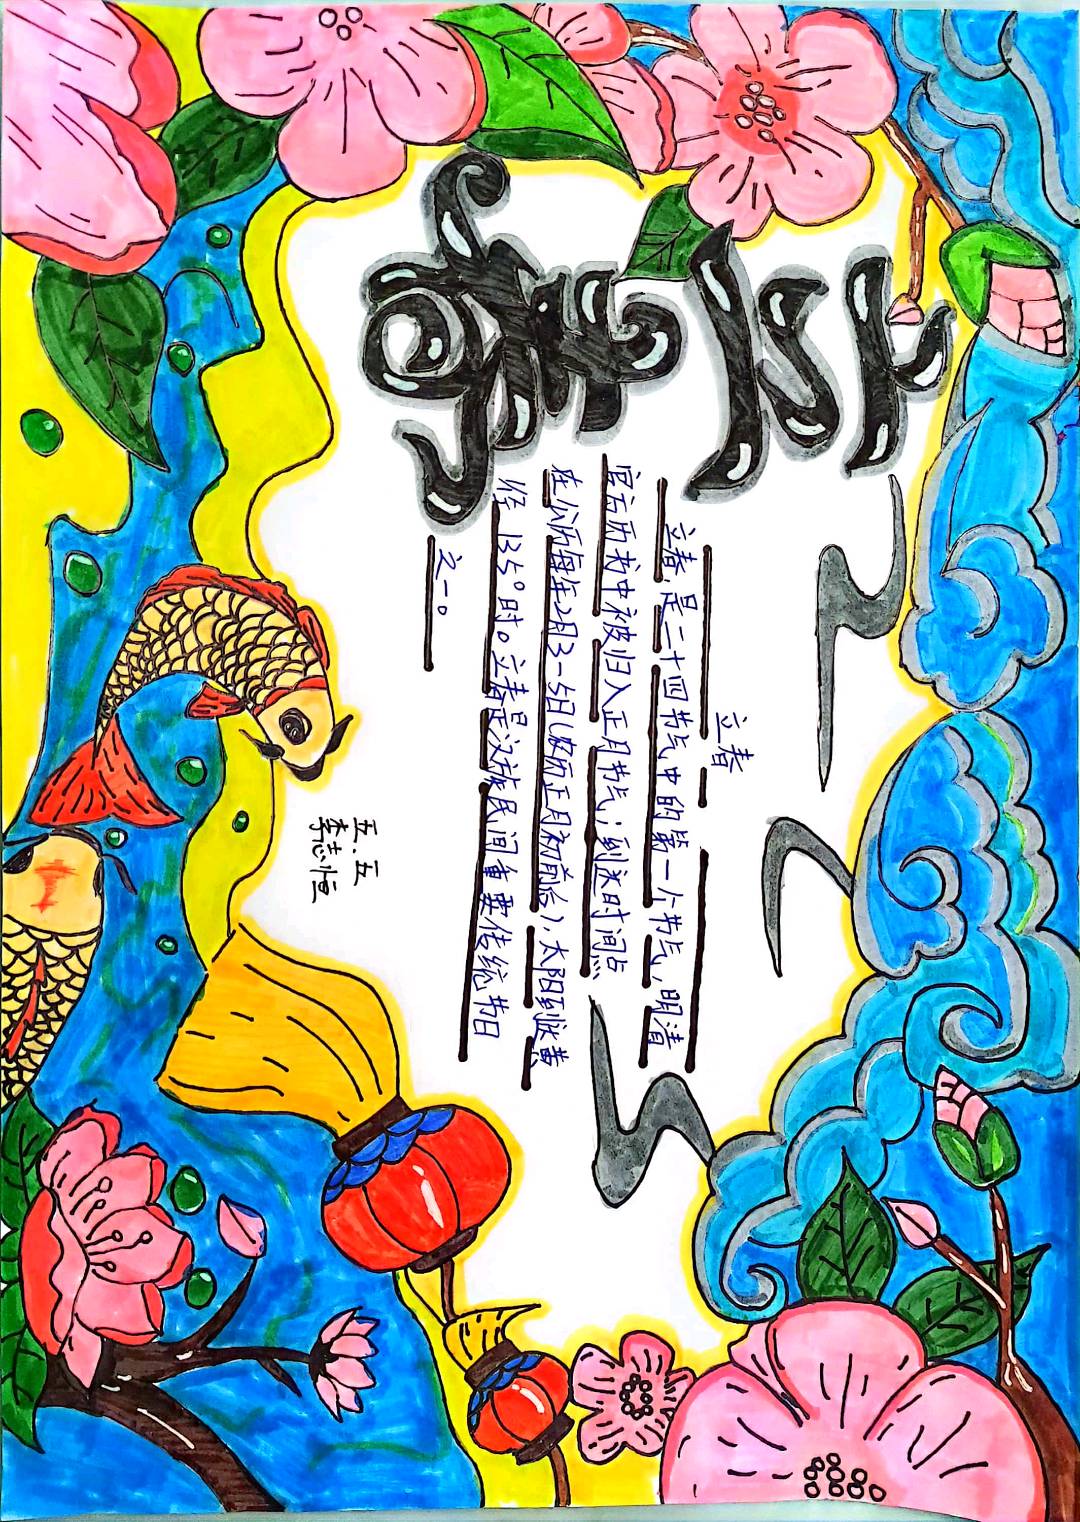 立春
立春
立春,是二十四节气中的第一个节气,明清
官方历书中被归入正月节气;到达时间点
在公历每年2月3-5日(农历正月初前后),太阳到达黄
经135°时。立春是汉族民间重要传统节日
之一。
五.五
李志恒